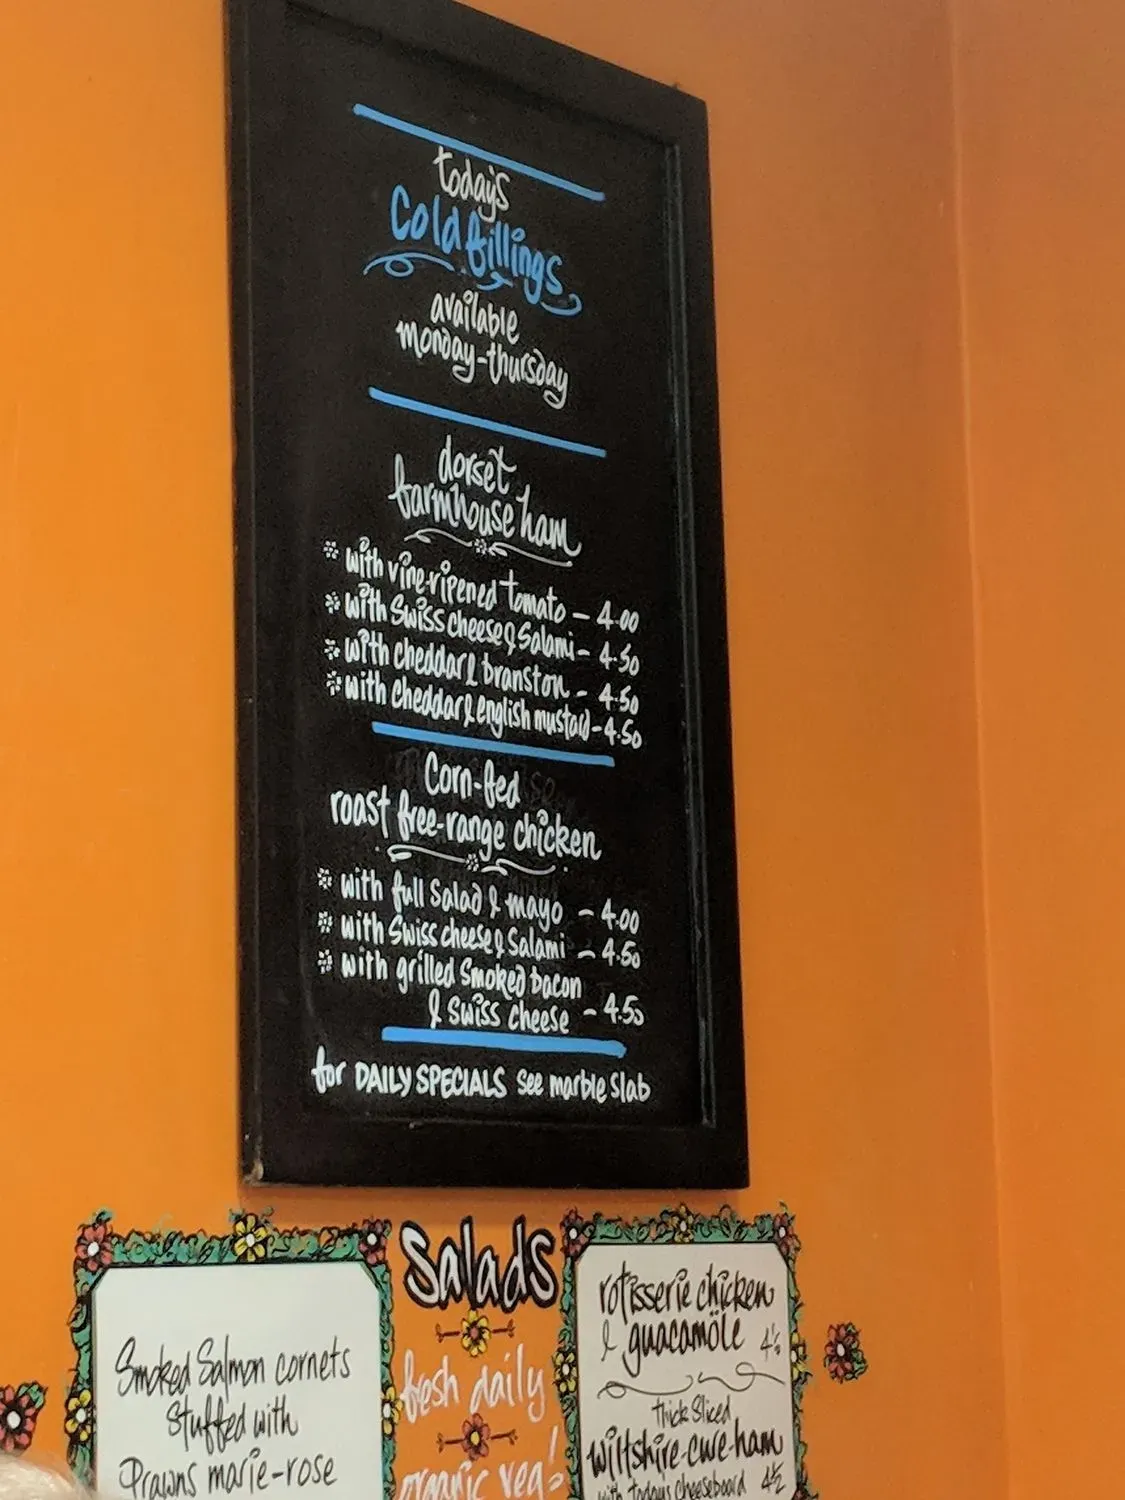 today's
Cold fillings
available
monday-thursday
dorset
farmhouse ham
with vine-ripened tomato - 4.00
with Swiss cheese & Salami - 4.50
with cheddar & branston - 4.50
with cheddar & english mustard - 4.50
Corn-fed
roast free-range chicken
with full Salad & mayo - 4.00
with Swiss cheese & Salami - 4.50
with grilled Smoked bacon
& Swiss cheese - 4.50
for DAILY SPECIALS see marble Slab
Salads
fresh daily
organic veg!
Smoked Salmon cornets
Stuffed with
Prawns marie-rose
rotisserie chicken
& guacamöle 4½
Thick Sliced
wiltshire-cure-ham
with todays cheeseboard 4½